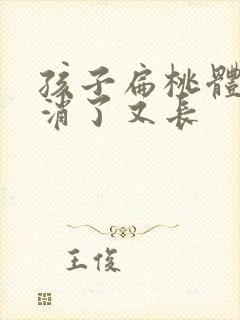 孩子扁桃體
消了又長
王俊